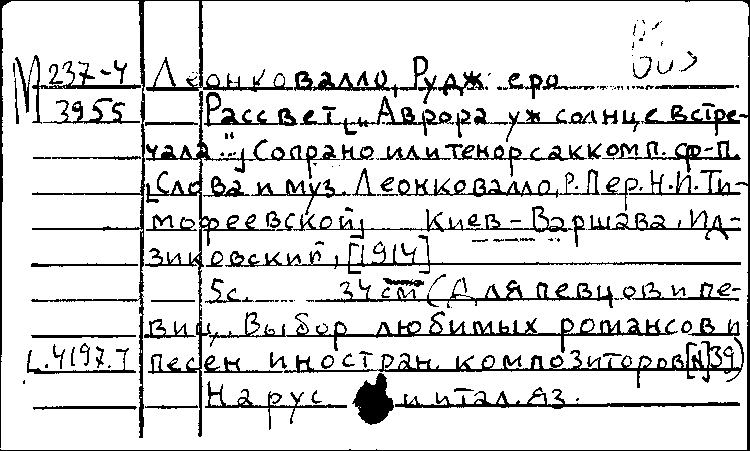 М 237-4 Леонковалло, Руджеро
3955 Рассвет [„Аврора уж солнце встре-
чала..."] Сопрано или тенор с акком п. ф-п.
[Слова и муз. Леонковалло, Р. Пер. Н. И. Ти-
мофеевской] Киев-Варшава, Ид-
зиковский, [1914]
5с. 34 см (Для певцов и пе-
виц. Выбор любимых романсов и
L.4197.7 песен иностран. композиторов [N] 39)
На рус и итал. яз.